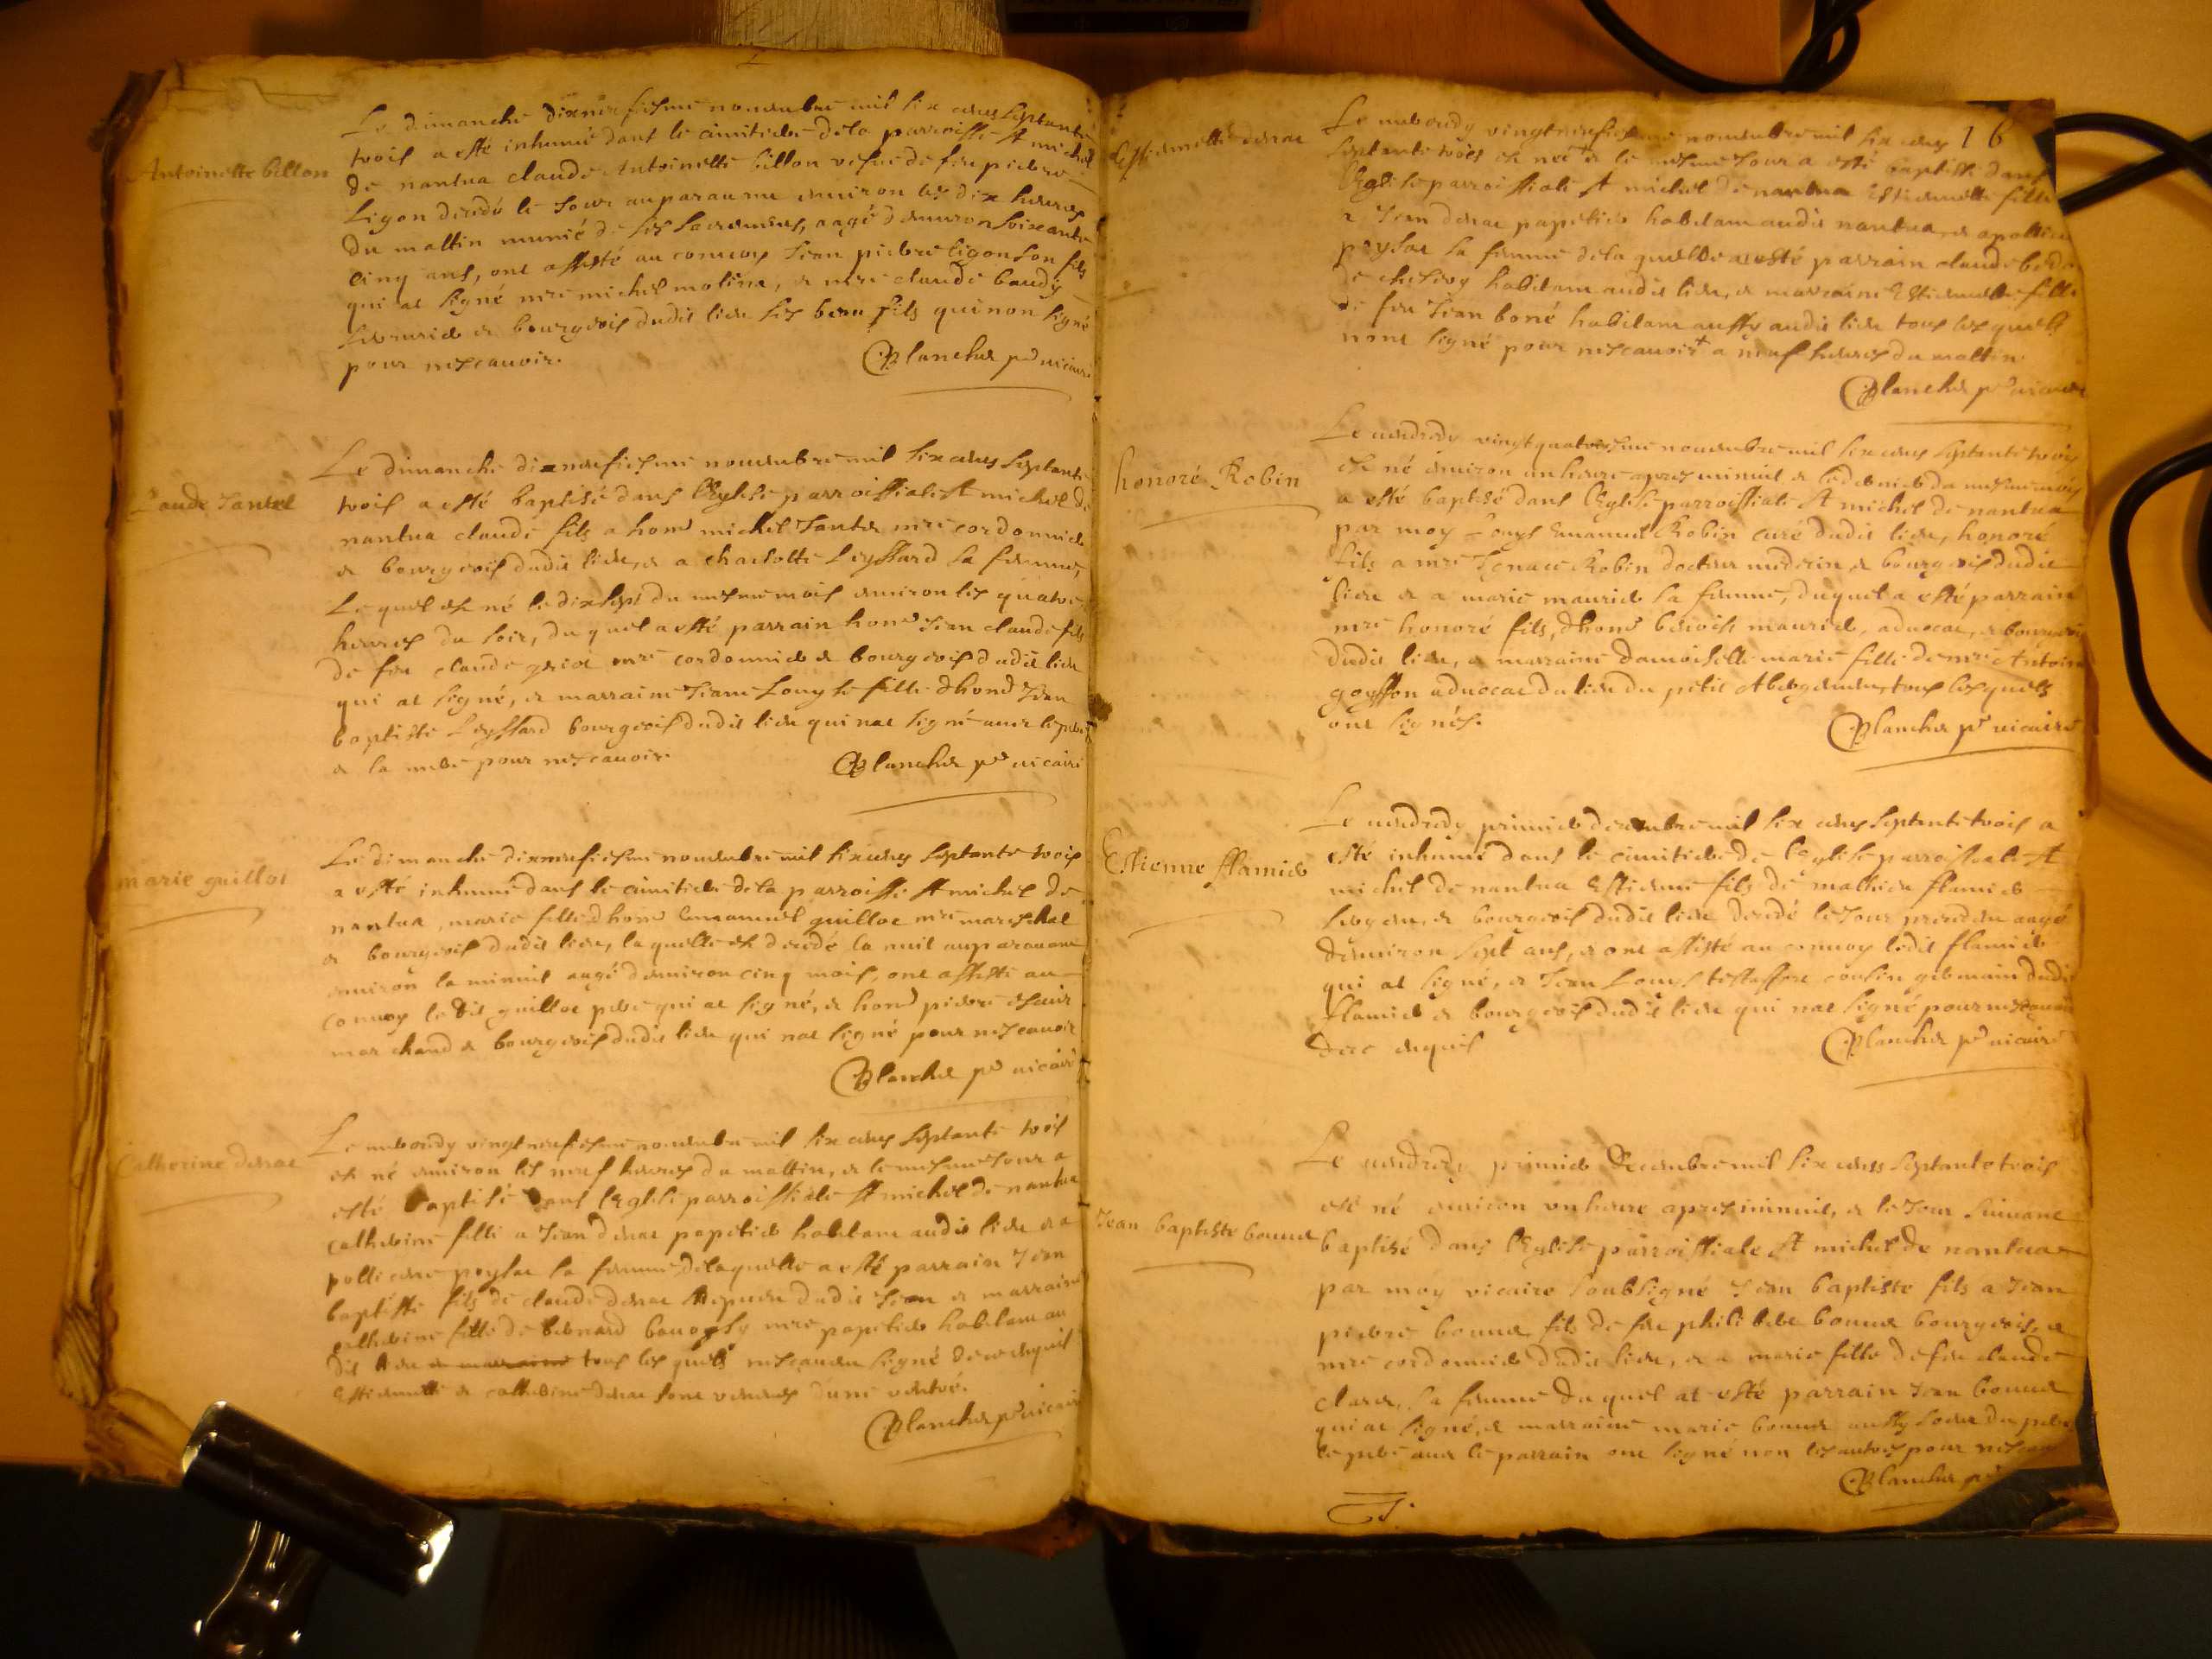 Antoinette billon
Le dimanche dixneufiesme nouembre mil six cens septante
trois a esté inhumé dans le cimitiere dela parroisse St michel
de nantua claude Antoinette billon vefue de feu pierre
ligon decedé le Jour auparauant enuiron les dix heures
du mattin munié de ses sacremens, aagé denuiron soixante
cinq ans, ont assisté au conuoy Jean pierre ligon son fils
qui at signé mre michel molina, & mre claude baudy
serrurier & bourgeois dudit lieu ses beau fils qui non signé
pour nescauoir.
Blanchet pre vicaire
Claude Jantet
Le dimanche dixneufiesme nouembre mil six cens septante
trois a esté baptisé dans l'Eglise parroissiale St michel de
nantua claude fils a honr michel Jantet mre cordonnier
& bourgeois dudit lieu, & a charlotte Leyssard sa femme,
Lequel est né le dixsept du mesme mois enuiron les quatre
heures du soir, duquel a esté parrain honr Jean claude fils
de feu claude mre cordonnier & bourgeois dudit lieu
qui at signé, & marraine Jeane Louyse fille dhonr Jean
baptiste Leyssard bourgeois dudit lieu qui nat signé auec le pere
& la mere pour nescauoir.
Blanchet pre vicaire
marie guillot
Le dimanche dixneufiesme nouembre mil six cens septante trois
a esté inhumé dans le cimitiere dela parroisse St michel de
nantua, marie fille dhonr Emanuel guillot mre mareschal
& bourgeois dudit lieu, laquelle est decedé la nuit auparauant
enuiron la minuit aagé denuiron cinq mois, ont assisté au
conuoy le dit guillot pere qui at signé, & honr pierre
marchand & bourgeois dudit lieu qui nat signé pour nescauoir
Blanchet pre vicaire
Catherine derac
Le mercredy vingtneufiesme nouembre mil six cens septante trois
est né enuiron les neuf heures du mattin, & le mesme Jour a
esté baptisé dans l'Eglise parroissiale St michel de nantua
catherine fille a Jean derac papetier habitant audit lieu & a
pollicene peysat sa femme delaquelle a esté parrain Jean
baptiste fils de claude derac nepueu dudit Jean & marraine
catherine fille de bernard mre papetier habitant au
dit lieu & marraine tous lesquels nescauent signé de ce enquis
Estiennette & catherine derac sont venues dune ventré.
Blanchet pre vicaire
16
Estiennette derac
Le mercredy vingtneufiesme nouembre mil six cens
septante trois est neé & le mesme Jour a esté baptisé dans
l'Eglise parroissiale St michel de nantua Estiennette fille
a Jean derac papetier habitant audit nantua & apolline
peysat sa femme dela quelle a esté parrain claude
de habitant audit lieu, & marraine Estiennette fille
de feu Jean boné habitant aussy audit lieu tous lesquels
nont signé pour nescauoir + a neuf heures du mattin.
Blanchet pre vicaire
honoré Robin
Le vendredy vingtquatriesme nouembre mil six cens septante trois
est né enuiron un heure apres minuit & le dernier du mesme mois
a esté baptisé dans l'Eglise parroissiale St michel de nantua
par moy Louys Emanuel Robin curé dudit lieu, honoré
fils a mre Ignace Robin docteur medecin & bourgeois dudit
lieu & a marie maurier sa femme, duquel a esté parrain
mre honoré fils, dhonr benoist maurier, aduocat, & bourgeois
dudit lieu, & marraine damoiselle marie fille de mre Antoine
goyffon aduocat du lieu du petit Abergement tous lesquels
ont signés.
Blanchet pre vicaire
Estienne flamier
Le vendredy premier decembre mil six cens septante trois a
esté inhumé dans le cimitiere de l'eglise parroissiale St
michel de nantua Estienne fils de mathieu flamier
sergeu, & bourgeois dudit lieu decedé le Jour precedent aagé
denuiron sept ans, & ont assisté au conuoy ledit flamier
qui at signé, & Jean Louys cousin germain dudit
flamier & bourgeois dudit lieu qui nat signé pour nescauoir
de ce enquis
Blanchet pre vicaire
Jean baptiste bouuet
Le vendredy premier Decembre mil six cens septante trois
est né enuiron un heure apres minuit, & le Jour suiuant
baptisé dans l'Eglise parroissiale St michel de nantua
par moy vicaire soubsigné Jean baptiste fils a Jean
pierre bouuet fils de feu philibert bouuet bourgeois, &
mre cordonnier dudit lieu, & a marie fille de feu claude
claret, sa femme duquel at esté parrain Jean bouuet
qui at signé, & marraine marie bouuet aussy soeur du pere
le pere auec le parrain ont signé non les autres pour nescauoir
Blanchet pre